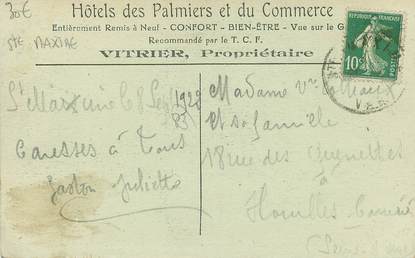 30€
Hôtels des Palmiers et du Commerce
Entièrement Remis à Neuf - CONFORT - BIEN-ÊTRE - Vue sur le G
Recommandé par le T. C. F.
VITRIER, Propriétaire
Ste MAXIME
RÉPUBLIQUE FRANÇAISE
10c
POSTES
VAR
St Maxime le 8 Sept 1928
Caresses à Tous
Gaston Juliette
Madame Vve
et sa famille
18 rue des
à
Houilles